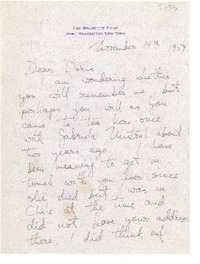 November 19th 1957
Dear Doris
I am wondering whether
you will remember me, but
perhaps you will as you
came to tea here once
with Gabriela Mistral about
two years ago. I have
been meaning to get in
touch with you ever since
she died but I was in
Chile at the time and
did not have your address
there. I did think of